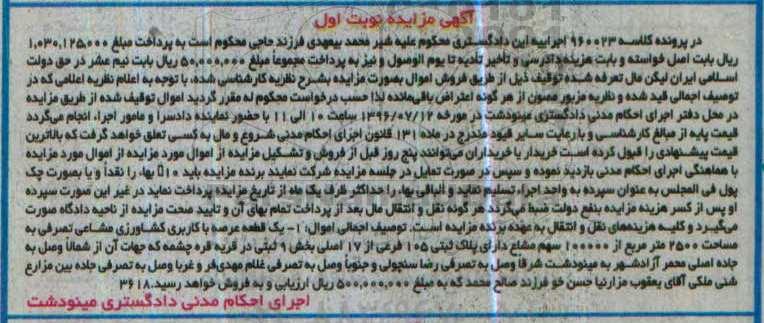 آگهی مزایده نوبت اول
در پرونده کلاسه ۹۶۰۰۲۳ اجراییه این دادگستری محکوم علیه شیر محمد بیعهدی فرزند حاجی محکوم است به پرداخت مبلغ ۱,۰۳۰,۱۲۵,۰۰۰
ریال بابت اصل خواسته و بابت هزینه دادرسی و تأخیر تأدیه تا یوم الوصول و نیز به پرداخت مجموعاً مبلغ ۵۰,۰۰۰,۰۰۰ ریال بابت نیم عشر در حق دولت
اسلامی ایران لیکن مال تعرفه شده توقیف ذیل از طریق فروش اموال بصورت مزایده بشرح نظریه کارشناسی شده، با توجه به اعلام نظریه اعلامی که در
توصیف اجمالی قید شده و نظریه مزبور مصون از هر گونه اعتراض باقی‌مانده لذا حسب درخواست محکوم له مقرر گردید اموال توقیف شده از طریق مزایده
در محل دفتر اجرای احکام مدنی دادگستری مینودشت در مورخه ۱۳۹۶/۰۷/۱۲ ساعت ۱۰ الی ۱۱ با حضور نماینده دادسرا و مامور اجراء انجام می‌گردد
قیمت پایه از مبالغ کارشناسی و با رعایت سایر قیود مندرج در ماده ۱۳۱ قانون اجرای احکام مدنی شروع و مال به کسی تعلق خواهد گرفت که بالاترین
قیمت پیشنهادی را قبول کرده است خریدار یا خریداران می‌توانند پنج روز قبل از فروش و تشکیل مزایده از اموال مورد مزایده از اموال مورد مزایده
با هماهنگی اجرای احکام مدنی بازدید نموده و سپس در صورت تمایل در جلسه مزایده شرکت نمایند برنده مزایده باید ۱۰ بها، را نقداً و یا بصورت چک
پول فی المجلس به عنوان سپرده به واحد اجراء تسلیم نماید و الباقی بها، را حداکثر ظرف یک ماه از تاریخ مزایده پرداخت نماید در غیر این صورت سپرده
او پس از کسر هزینه مزایده بنفع دولت ضبط می‌گردد هر گونه نقل و انتقال مال بعد از پرداخت تمام بهای آن و تایید صحت مزایده از ناحیه دادگاه صورت
می‌گیرد و کلیه هزینه‌های نقل و انتقال به عهده برنده مزایده است. توصیف اجمالی اموال: ۱- یک قطعه عرصه با کاربری کشاورزی مشاعی تصرفی به
مساحت ۲۵۰۰ متر مربع از ۱۰۰۰۰۰ سهم مشاع دارای پلاک ثبتی ۱۰۵ فرعی از ۱۷ اصلی بخش ۹ ثبتی در قریه قره چشمه که جهات آن از شمالاً وصل به
جاده اصلی محمر آزادشهر به مینودشت شرقاً وصل به تصرفی رضا سنچولی و جنوباً وصل به تصرفی غلام مهدی‌فر و غربا وصل به تصرفی جاده بین مزارع
شنی ملکی آقای یعقوب مزارنیا حسن خو فرزند صالح محمد که به مبلغ ۵۰۰,۰۰۰,۰۰۰ ریال ارزیابی و به فروش خواهد رسید. ۳۶۱۸
اجرای احکام مدنی دادگستری مینودشت